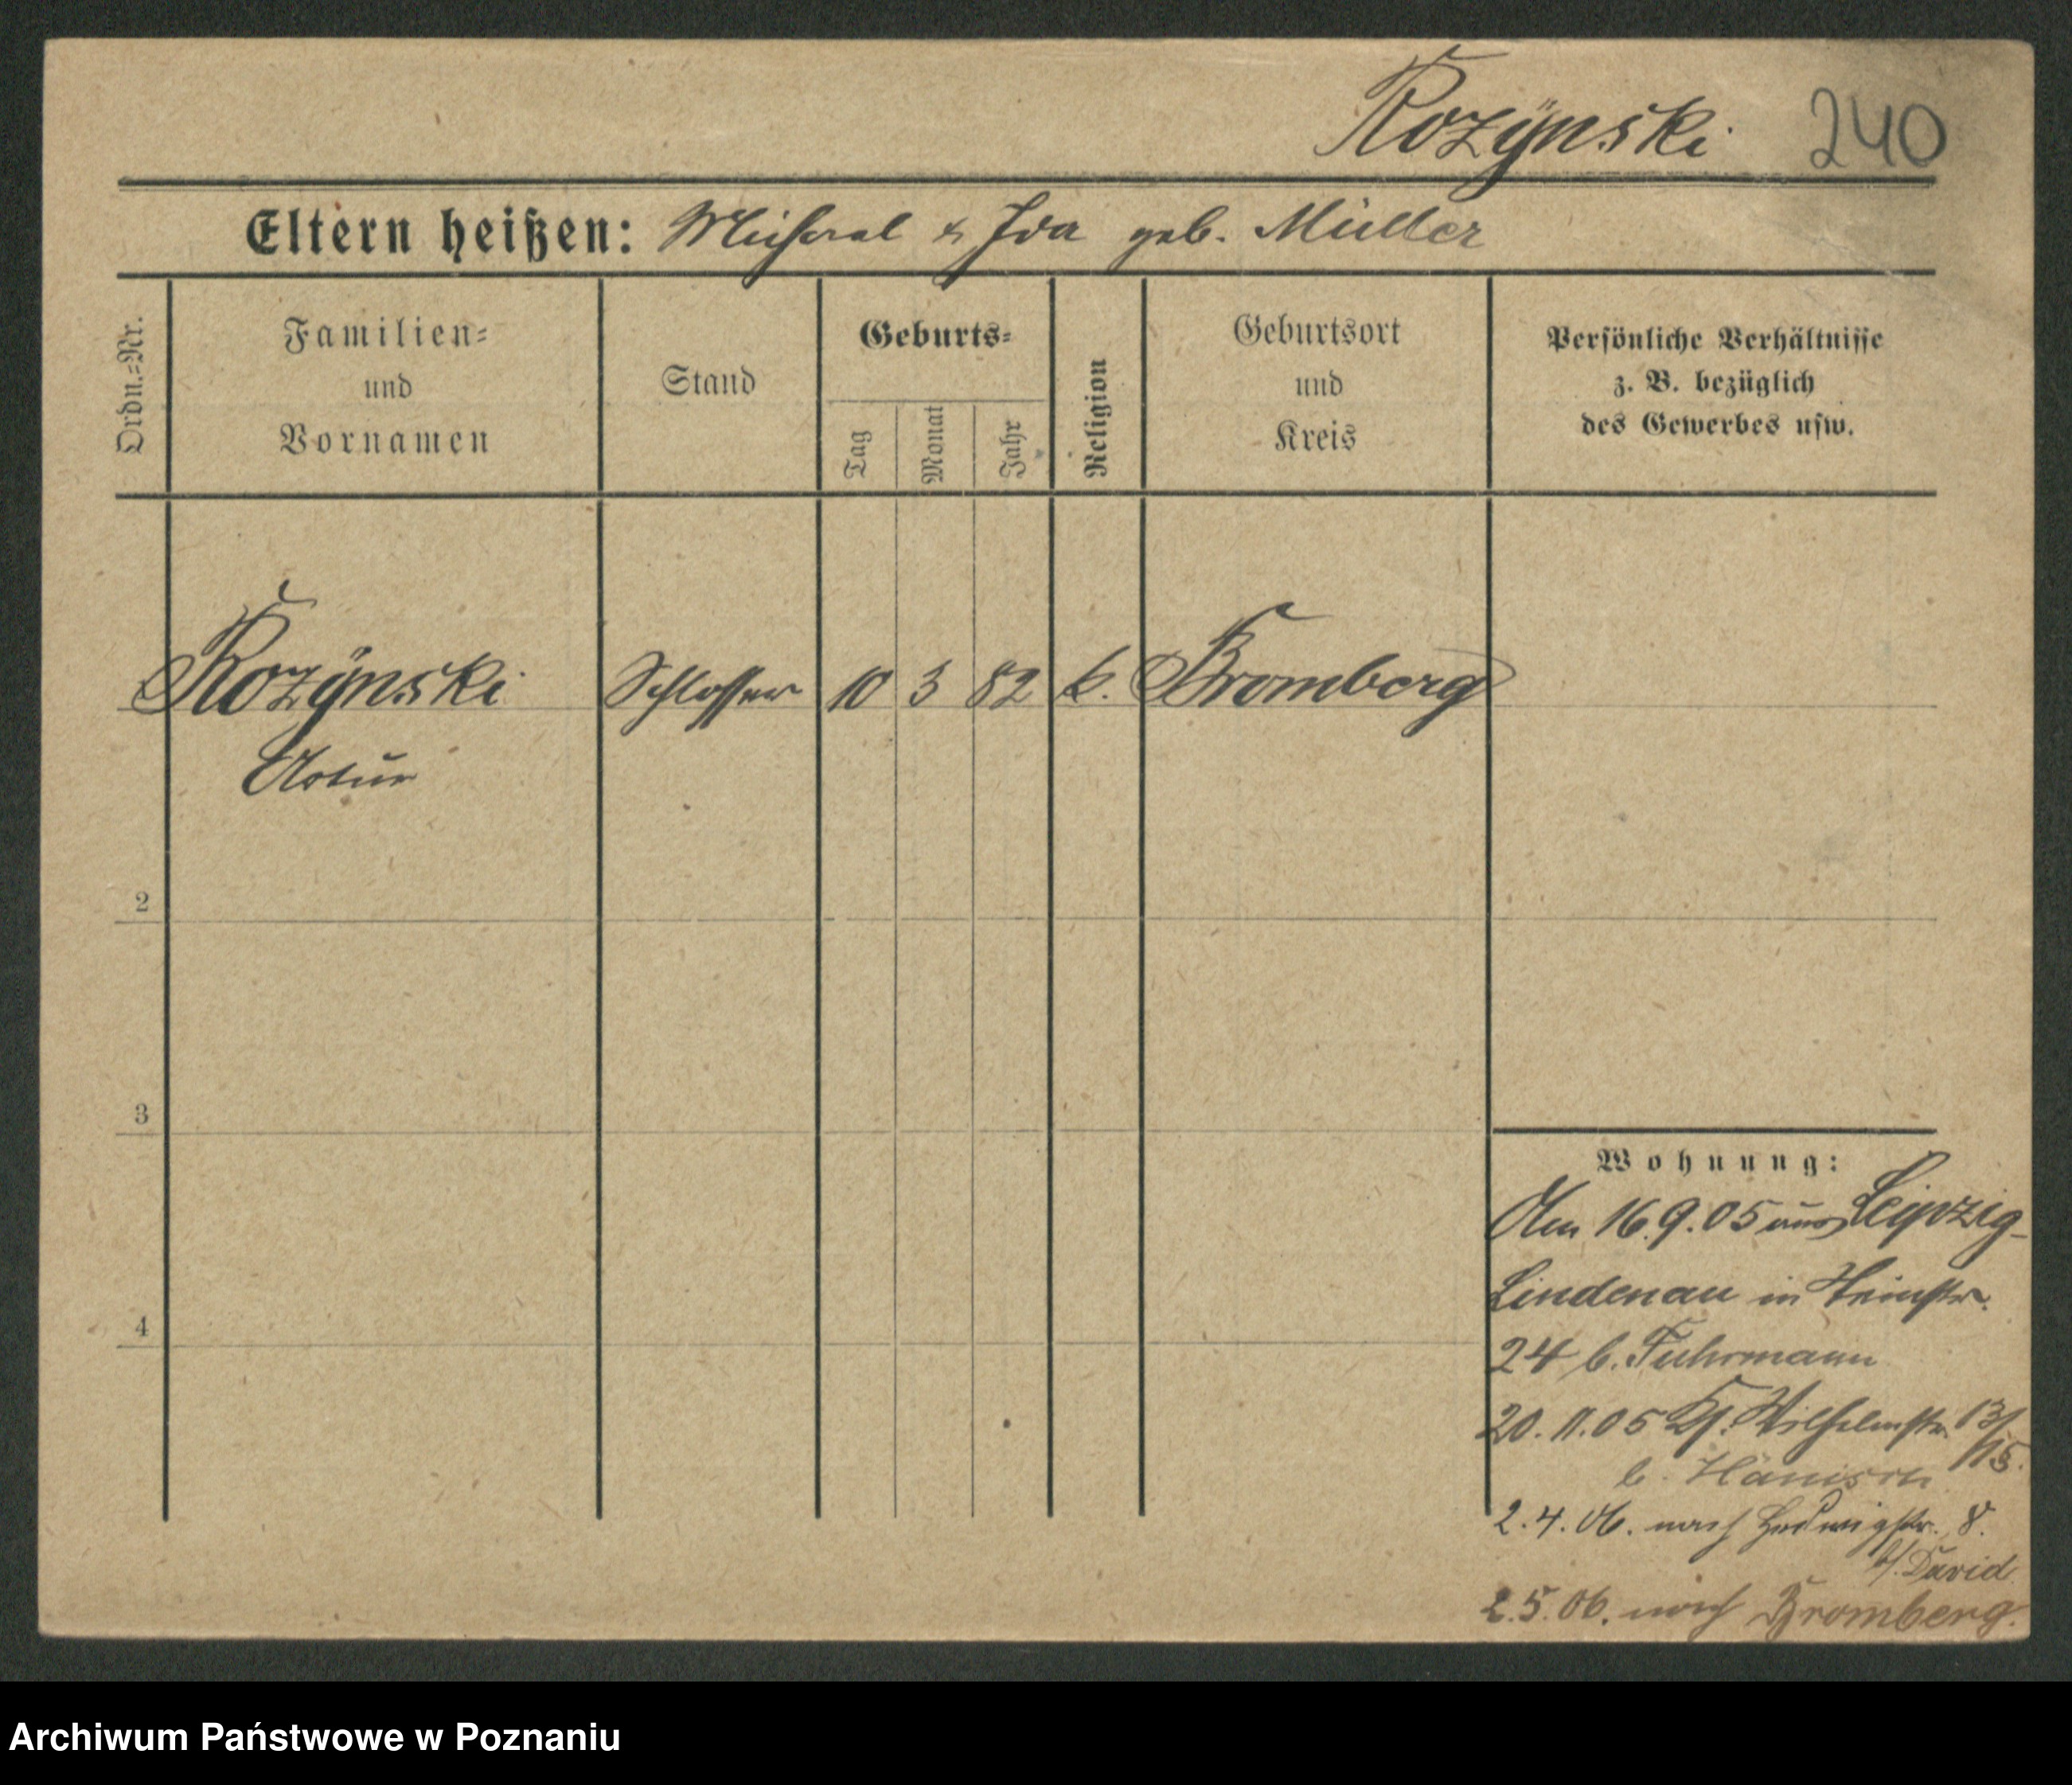 Rozynski 240
Eltern heißen: Michael & Ida geb. Müller
Ordn.-Nr.
Familien-
und
Vornamen
Stand
Geburts-
Tag
Monat
Jahr
Religion
Geburtsort
und
Kreis
Persönliche Verhältnisse
z. B. bezüglich
des Gewerbes usw.
Rozynski Schlosser 10 3 82 k. Bromberg
Artur
2
3
4
Wohnung:
Am 16.9.05 aus Leipzig-
Lindenau in
24 b. Fuhrmann
20.11.05 Wilhelmstr. 13/15.
b. Hänisch
2.4.06. nach Hedwigstr. 8.
b/. David
2.5.06. nach Bromberg.
Archiwum Państwowe w Poznaniu